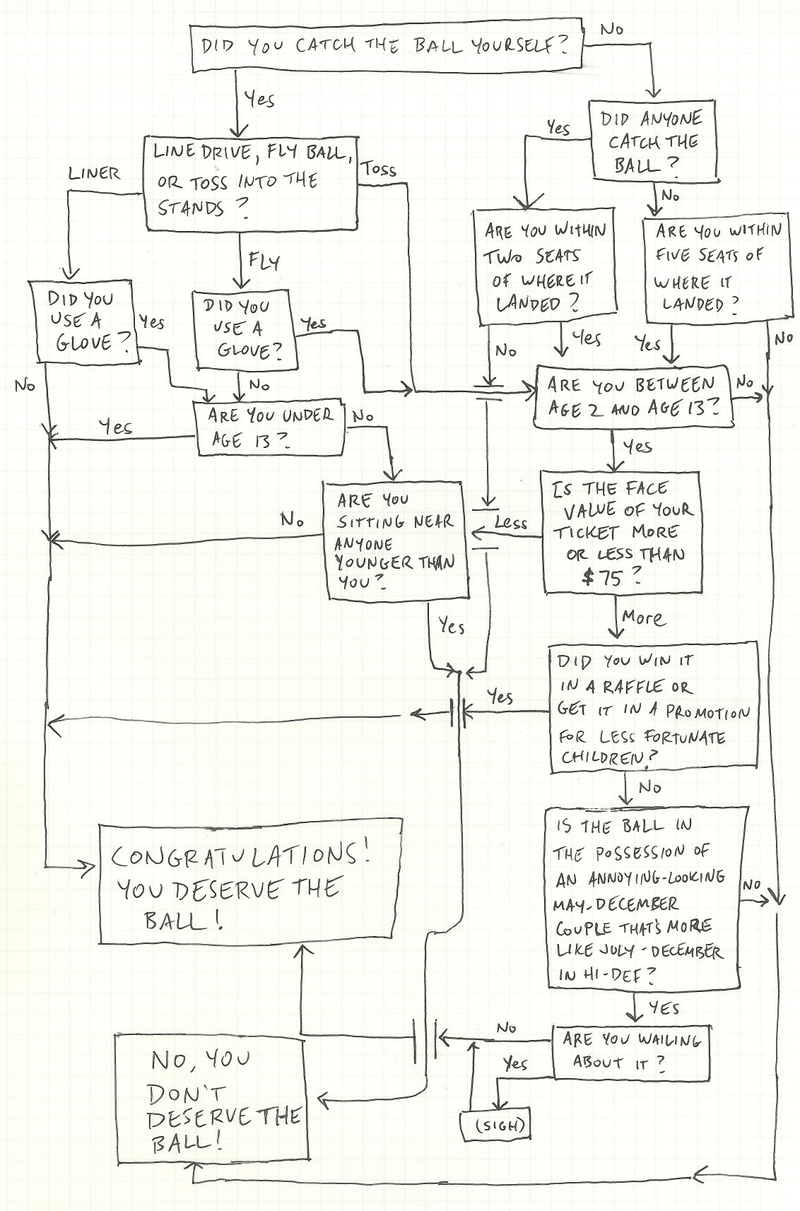 DID YOU CATCH THE BALL YOURSELF?
No
Yes
DID ANYONE
CATCH THE
BALL?
Yes
No
LINE DRIVE, FLY BALL,
OR TOSS INTO THE
STANDS?
LINER
Toss
FLY
ARE YOU WITHIN
TWO SEATS
OF WHERE IT
LANDED?
No
Yes
ARE YOU WITHIN
FIVE SEATS OF
WHERE IT
LANDED?
Yes
No
DID YOU
USE A
GLOVE?
Yes
No
DID YOU
USE A
GLOVE?
Yes
No
ARE YOU BETWEEN
AGE 2 AND AGE 13?
No
Yes
ARE YOU UNDER
AGE 13?
Yes
No
ARE YOU
SITTING NEAR
ANYONE
YOUNGER THAN
YOU?
No
Yes
IS THE FACE
VALUE OF YOUR
TICKET MORE
OR LESS THAN
$75?
Less
More
DID YOU WIN IT
IN A RAFFLE OR
GET IT IN A PROMOTION
FOR LESS FORTUNATE
CHILDREN?
Yes
No
IS THE BALL IN
THE POSSESSION OF
AN ANNOYING-LOOKING
MAY-DECEMBER
COUPLE THAT'S MORE
LIKE JULY-DECEMBER
IN HI-DEF?
NO
YES
CONGRATULATIONS!
YOU DESERVE THE
BALL!
ARE YOU WAILING
ABOUT IT?
No
Yes
(SIGH)
NO, YOU
DON'T
DESERVE THE
BALL!